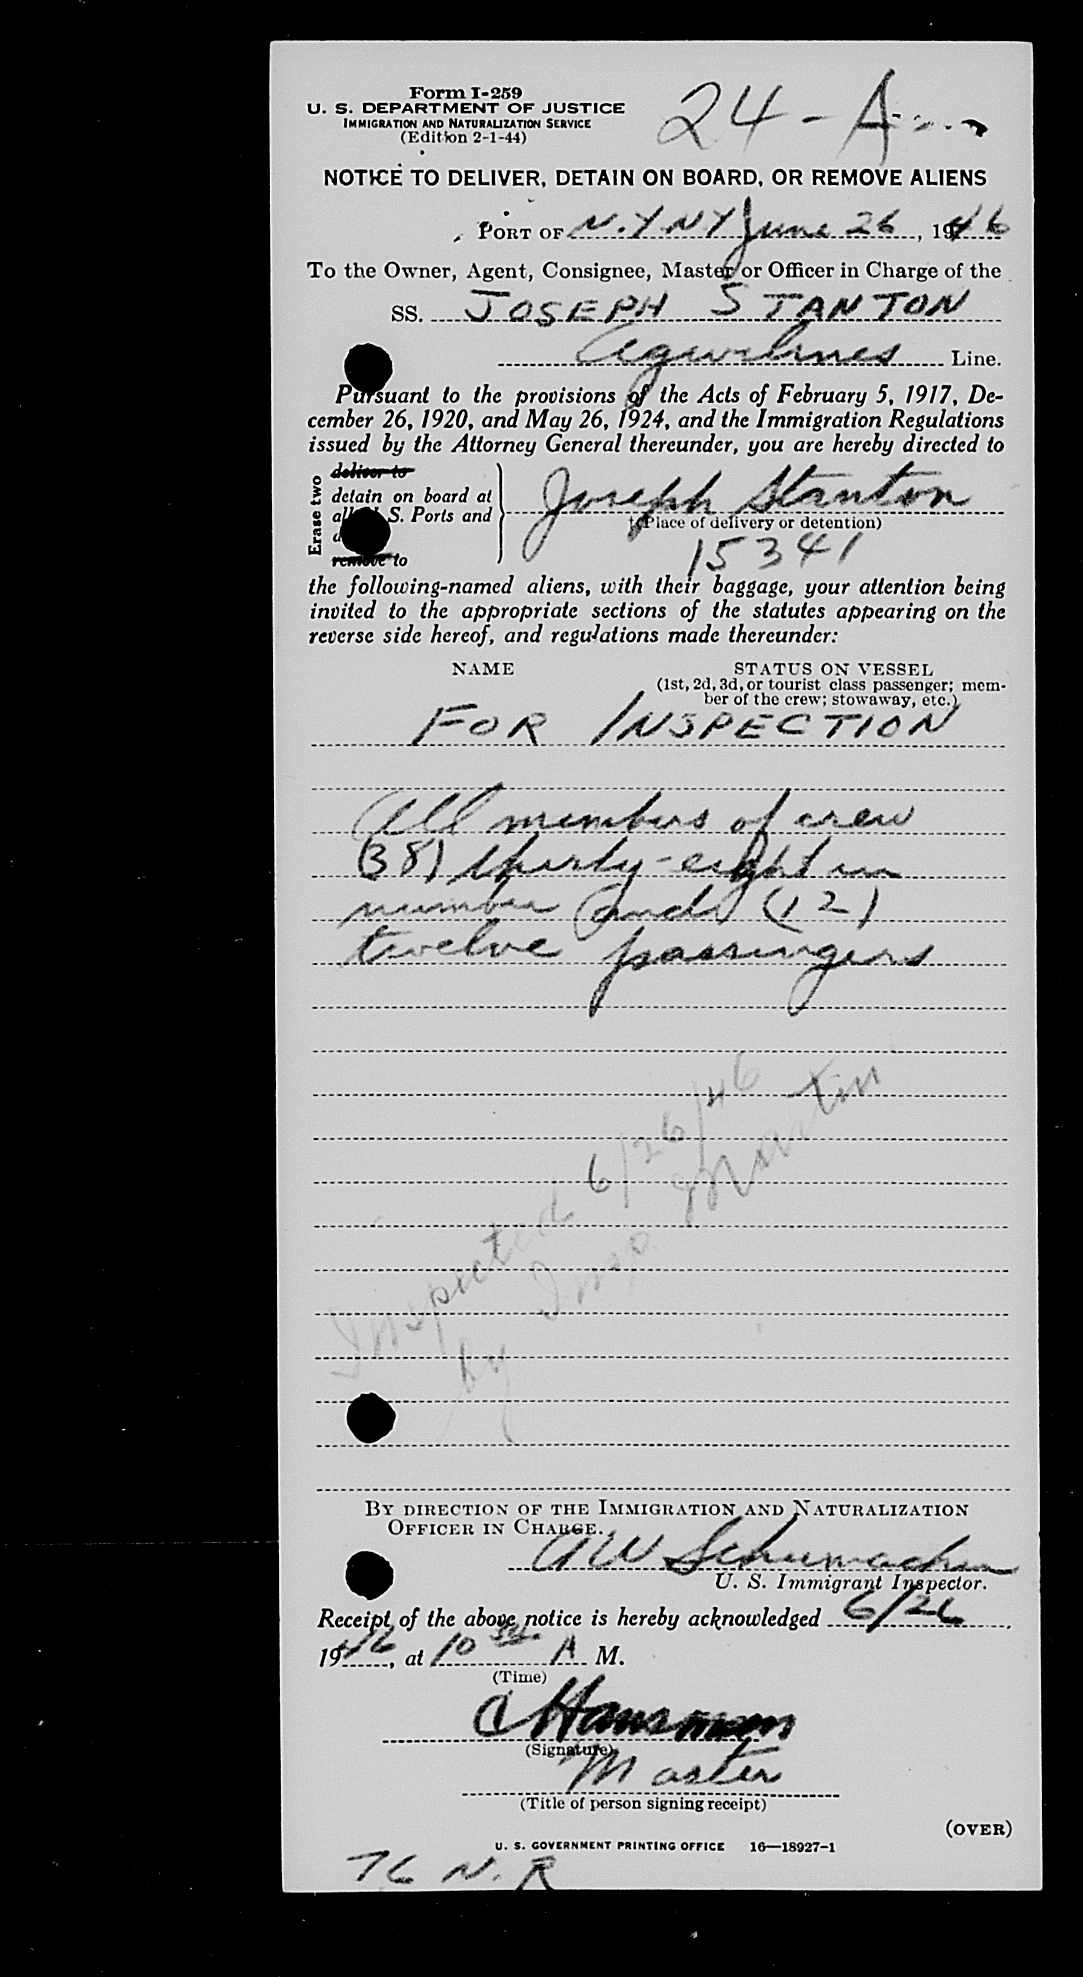 Form I-259
U. S. DEPARTMENT OF JUSTICE
IMMIGRATION AND NATURALIZATION SERVICE
(Edition 2-1-44)
24-A
NOTICE TO DELIVER, DETAIN ON BOARD, OR REMOVE ALIENS
PORT OF N.Y. NY June 26, 1946
To the Owner, Agent, Consignee, Master or Officer in Charge of the
SS. JOSEPH STANTON
Agwilines Line.
Pursuant to the provisions of the Acts of February 5, 1917, De-
cember 26, 1920, and May 26, 1924, and the Immigration Regulations
issued by the Attorney General thereunder, you are hereby directed to
Erase two
deliver to
detain on board at
all U. S. Ports and
remove to
Joseph Stanton
(Place of delivery or detention)
15341
the following-named aliens, with their baggage, your attention being
invited to the appropriate sections of the statutes appearing on the
reverse side hereof, and regulations made thereunder:
NAME STATUS ON VESSEL
(1st, 2d, 3d, or tourist class passenger; mem-
ber of the crew; stowaway, etc.)
FOR INSPECTION
All members of crew
(38) thirty-eight in
number and (12)
twelve passengers
Inspected 6/26/46
by Insp. Martin
BY DIRECTION OF THE IMMIGRATION AND NATURALIZATION
OFFICER IN CHARGE.
AW Schumacher
U. S. Immigrant Inspector.
Receipt of the above notice is hereby acknowledged 6/26
1946, at 10 A M.
(Time)
(Signature)
Master
(Title of person signing receipt)
(OVER)
U. S. GOVERNMENT PRINTING OFFICE 16—18927-1
76 N. R